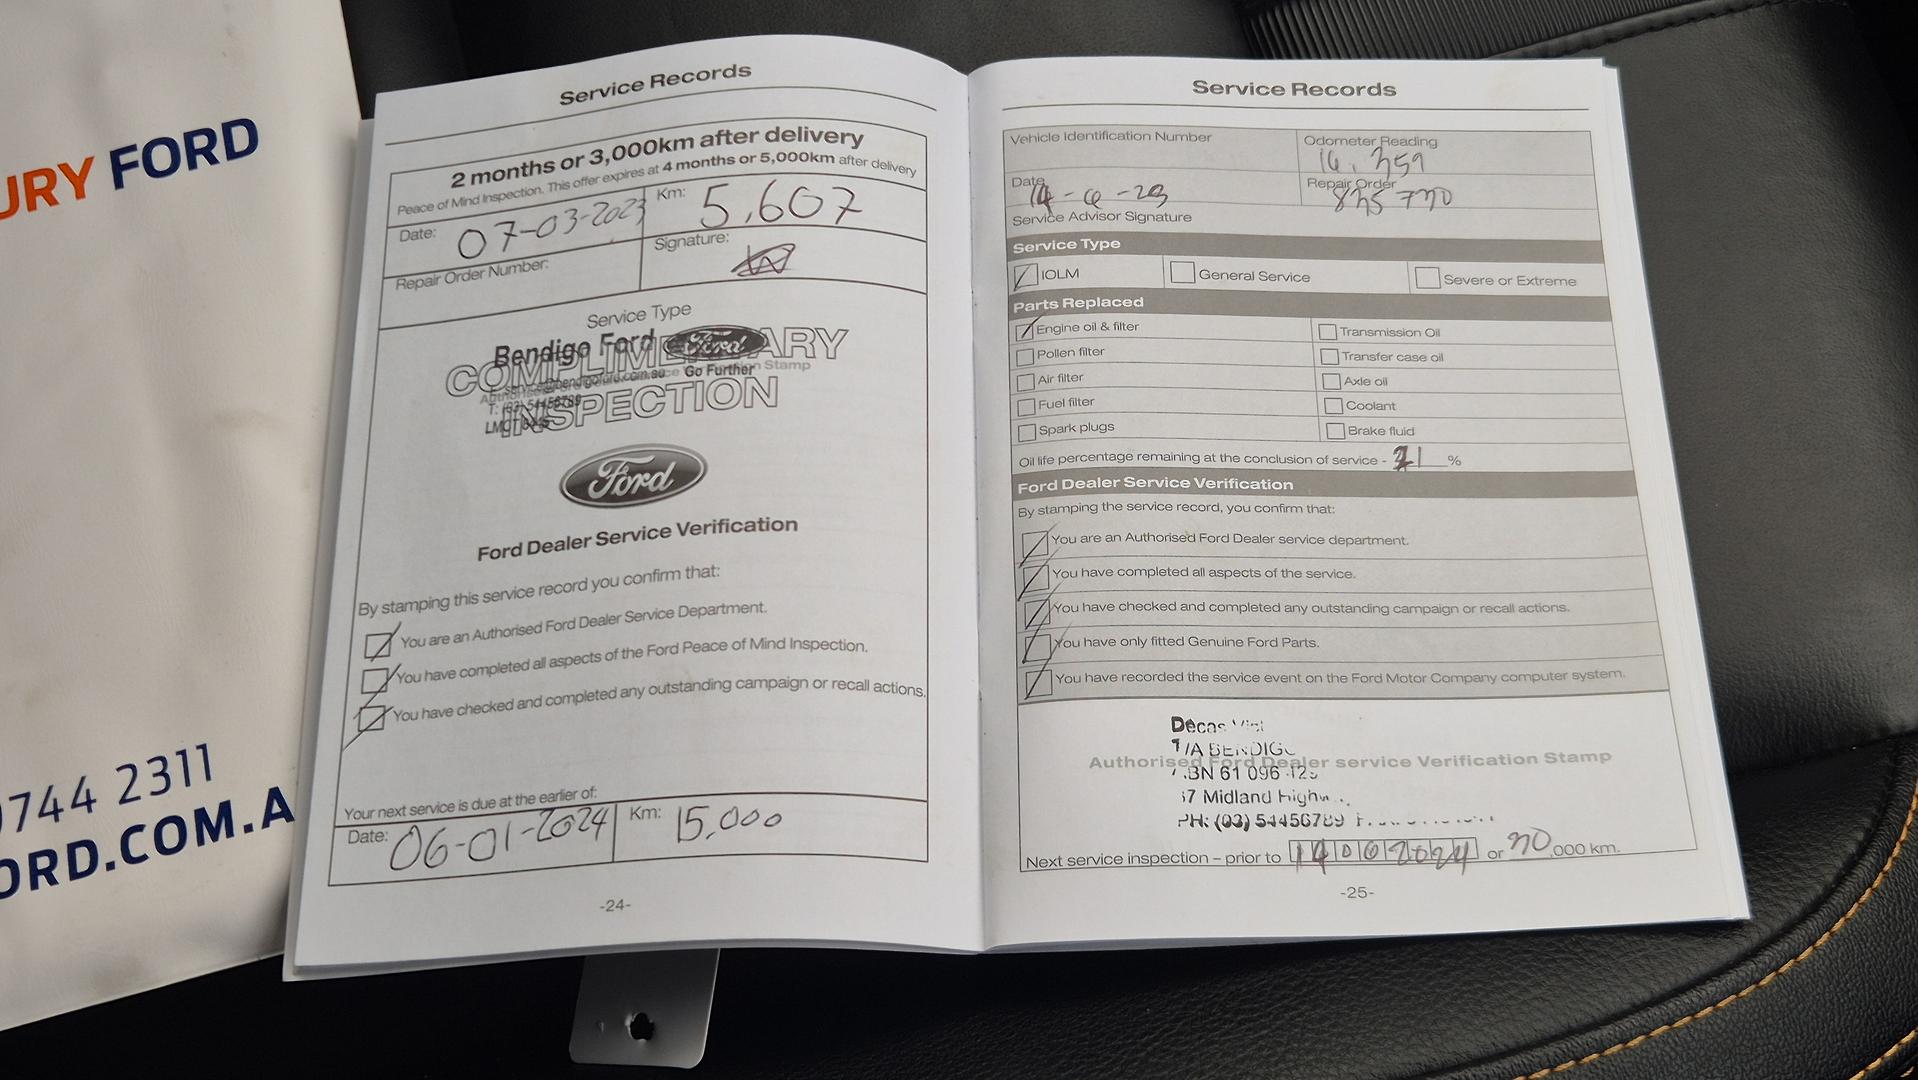 URY FORD
0744 2311
ORD.COM.A
Service Records
2 months or 3,000km after delivery
Peace of Mind Inspection. This offer expires at 4 months or 5,000km after delivery
Date: 07-03-2023
Km: 5,607
Repair Order Number:
Signature:
Service Type
Bendigo Ford Ford
COMPLIMENTARY
service@bendigoford.com.au Go Further
T: (03) 54456789
INSPECTION
LMCT
Ford
Ford Dealer Service Verification
By stamping this service record you confirm that:
You are an Authorised Ford Dealer Service Department.
You have completed all aspects of the Ford Peace of Mind Inspection.
You have checked and completed any outstanding campaign or recall actions.
Your next service is due at the earlier of:
Date: 06-01-2024 Km: 15,000
-24-
Service Records
Vehicle Identification Number
Odometer Reading
359
Date
Repair Order
Service Advisor Signature
Service Type
IOLM General Service Severe or Extreme
Parts Replaced
Engine oil & filter Transmission Oil
Pollen filter Transfer case oil
Air filter Axle oil
Fuel filter Coolant
Spark plugs Brake fluid
Oil life percentage remaining at the conclusion of service - %
Ford Dealer Service Verification
By stamping the service record, you confirm that:
You are an Authorised Ford Dealer service department.
You have completed all aspects of the service.
You have checked and completed any outstanding campaign or recall actions.
You have only fitted Genuine Ford Parts.
You have recorded the service event on the Ford Motor Company computer system.
T/A BENDIGO
Authorised Ford Dealer service Verification Stamp
61 096
Midland
PH: (03) 54456789
Next service inspection – prior to 14062024 or ,000 km.
-25-